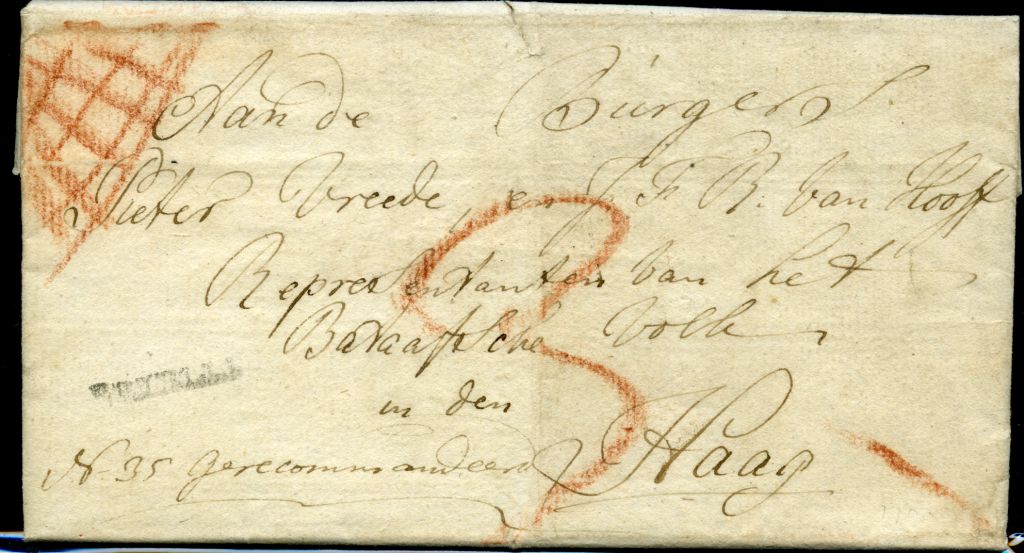 Aan de Burgers
Pieter Vreede, en J. F. R. van Hooff
Representanten van het
Bataafsche volk
in den
Haag
N 35 gerecommandeerd
3